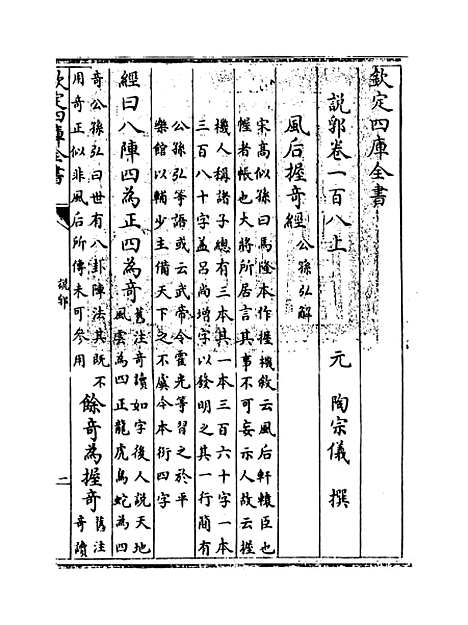 欽定四庫全書
說郛卷一百八上
元 陶宗儀 撰
風后握奇經 公孫弘解
宋高似孫曰馬隆本作握機敘云風后軒轅臣也
幄者帳也大將所居言其事不可妄示人故云握
機人稱諸子總有三本其一本三百六十字一本
三百八十字蓋呂尚增字以發明之其一行簡有
公孫弘等語或云武帝令霍光等習之於平
樂館以輔少主備天下之不虞今本衍四字
經曰八陣四為正四為奇 舊注奇讀如字後人說天地
風雲為四正龍虎鳥蛇為四
奇公孫弘曰世有八卦陣法其既不
用奇正似非風后所傳未可參用
餘奇為握奇 舊注
奇讀
欽定四庫全書
說郛
二